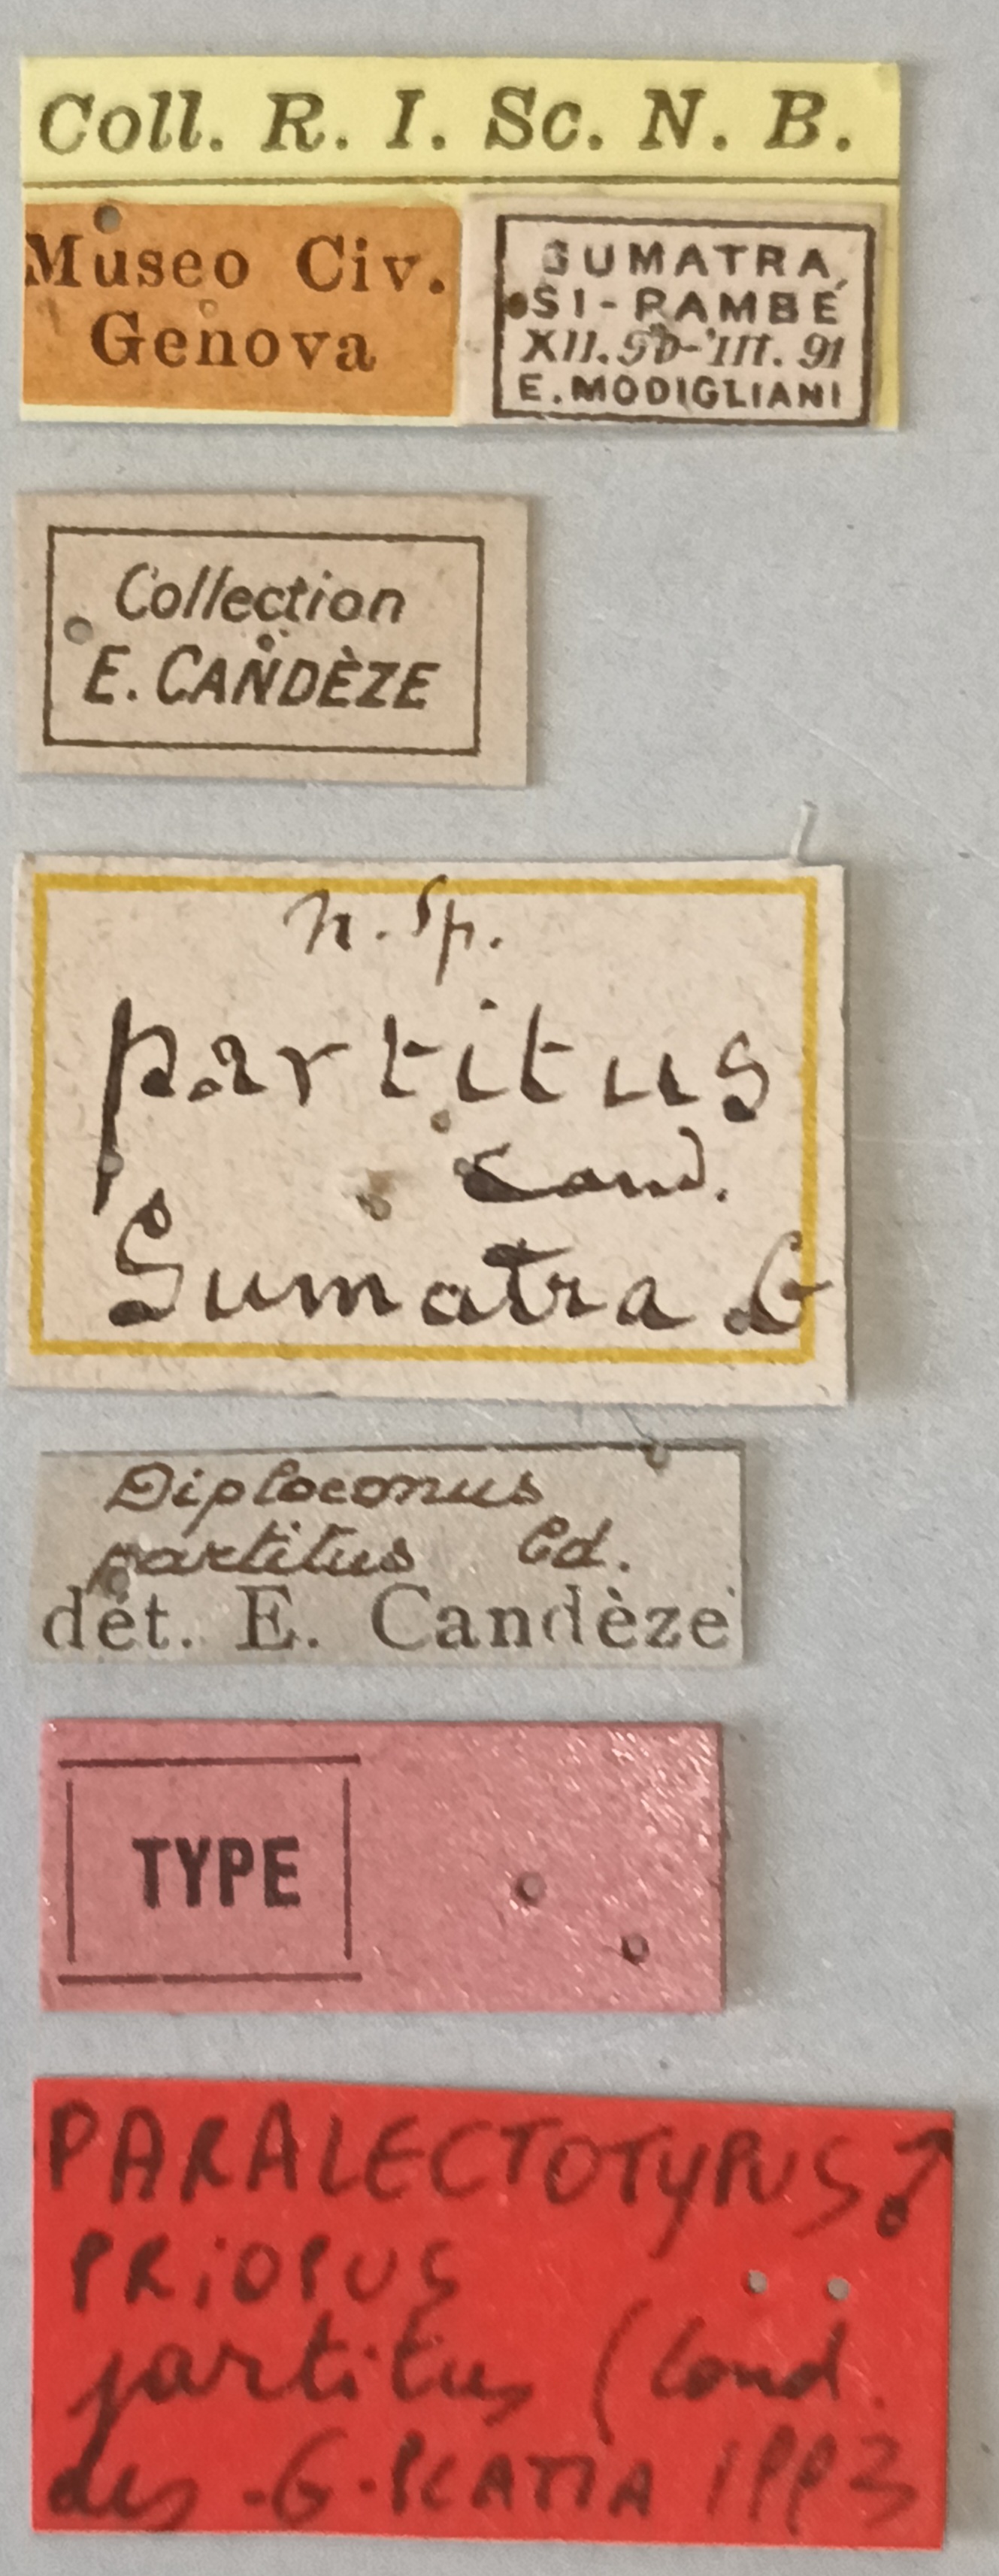 Coll. R. I. Sc. N. B.
Museo Civ.
Genova
SUMATRA
SI-RAMBÉ
XII.90-III.91
E. MODIGLIANI
Collection
E. CANDÈZE
n. sp.
partitus
Cand.
Sumatra G
Diploconus
partitus Cd.
dét. E. Candèze
TYPE
PARALECTOTYPUS ♂
PRiOPUS
partitus (Cand.
des. G. PLATIA 1993